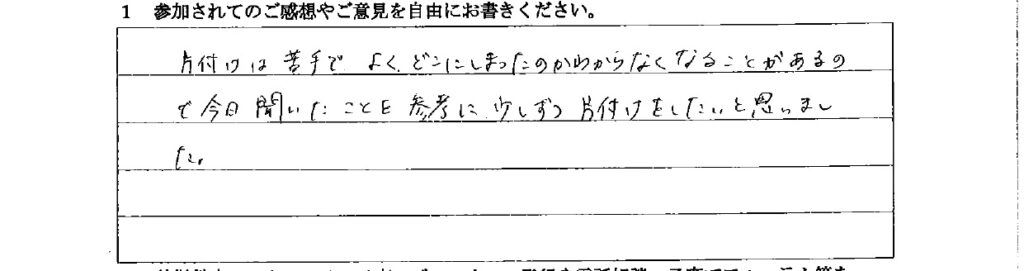 1 参加されてのご感想やご意見を自由にお書きください。
片付けは苦手で よく、どこにしまったのかわからなくなることがあるの
で今日聞いたことを参考に、少しずつ片付けをしたいと思いまし
た。